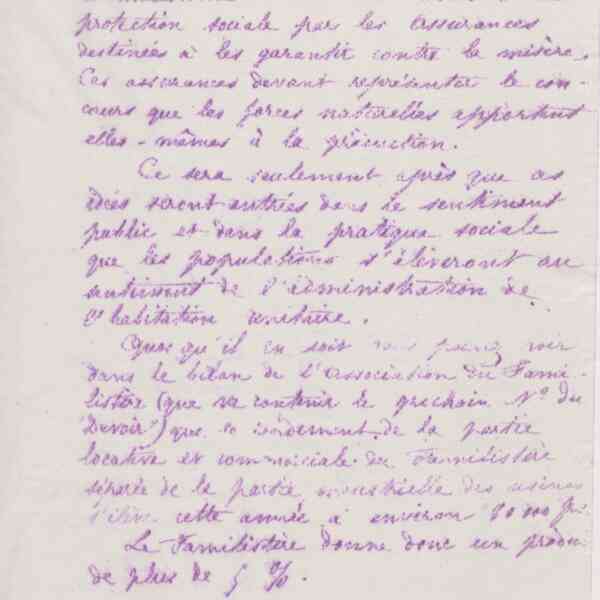 protection sociale par les assurances
destinées à les garantir contre la misère.
Ces assurances devant représenter le con-
cours que les forces naturelles apportent
elles-mêmes à la production.
Ce sera seulement après que ces
idées seront entrées dans le sentiment
public et dans la pratique sociale
que les populations s'élèveront au
sentiment de l'administration de
l'habitation unitaire.
Quoi qu'il en soit vous pourrez voir
dans le bilan de l'association du Fami-
listère (que va contenir le prochain No du
Devoir) que le rendement de la partie
locative et commerciale du Familistère
séparée de la partie industrielle des usines
s'élève cette année à environ 80 000 fr.
Le Familistère donne donc un produit
de plus de 5 %.